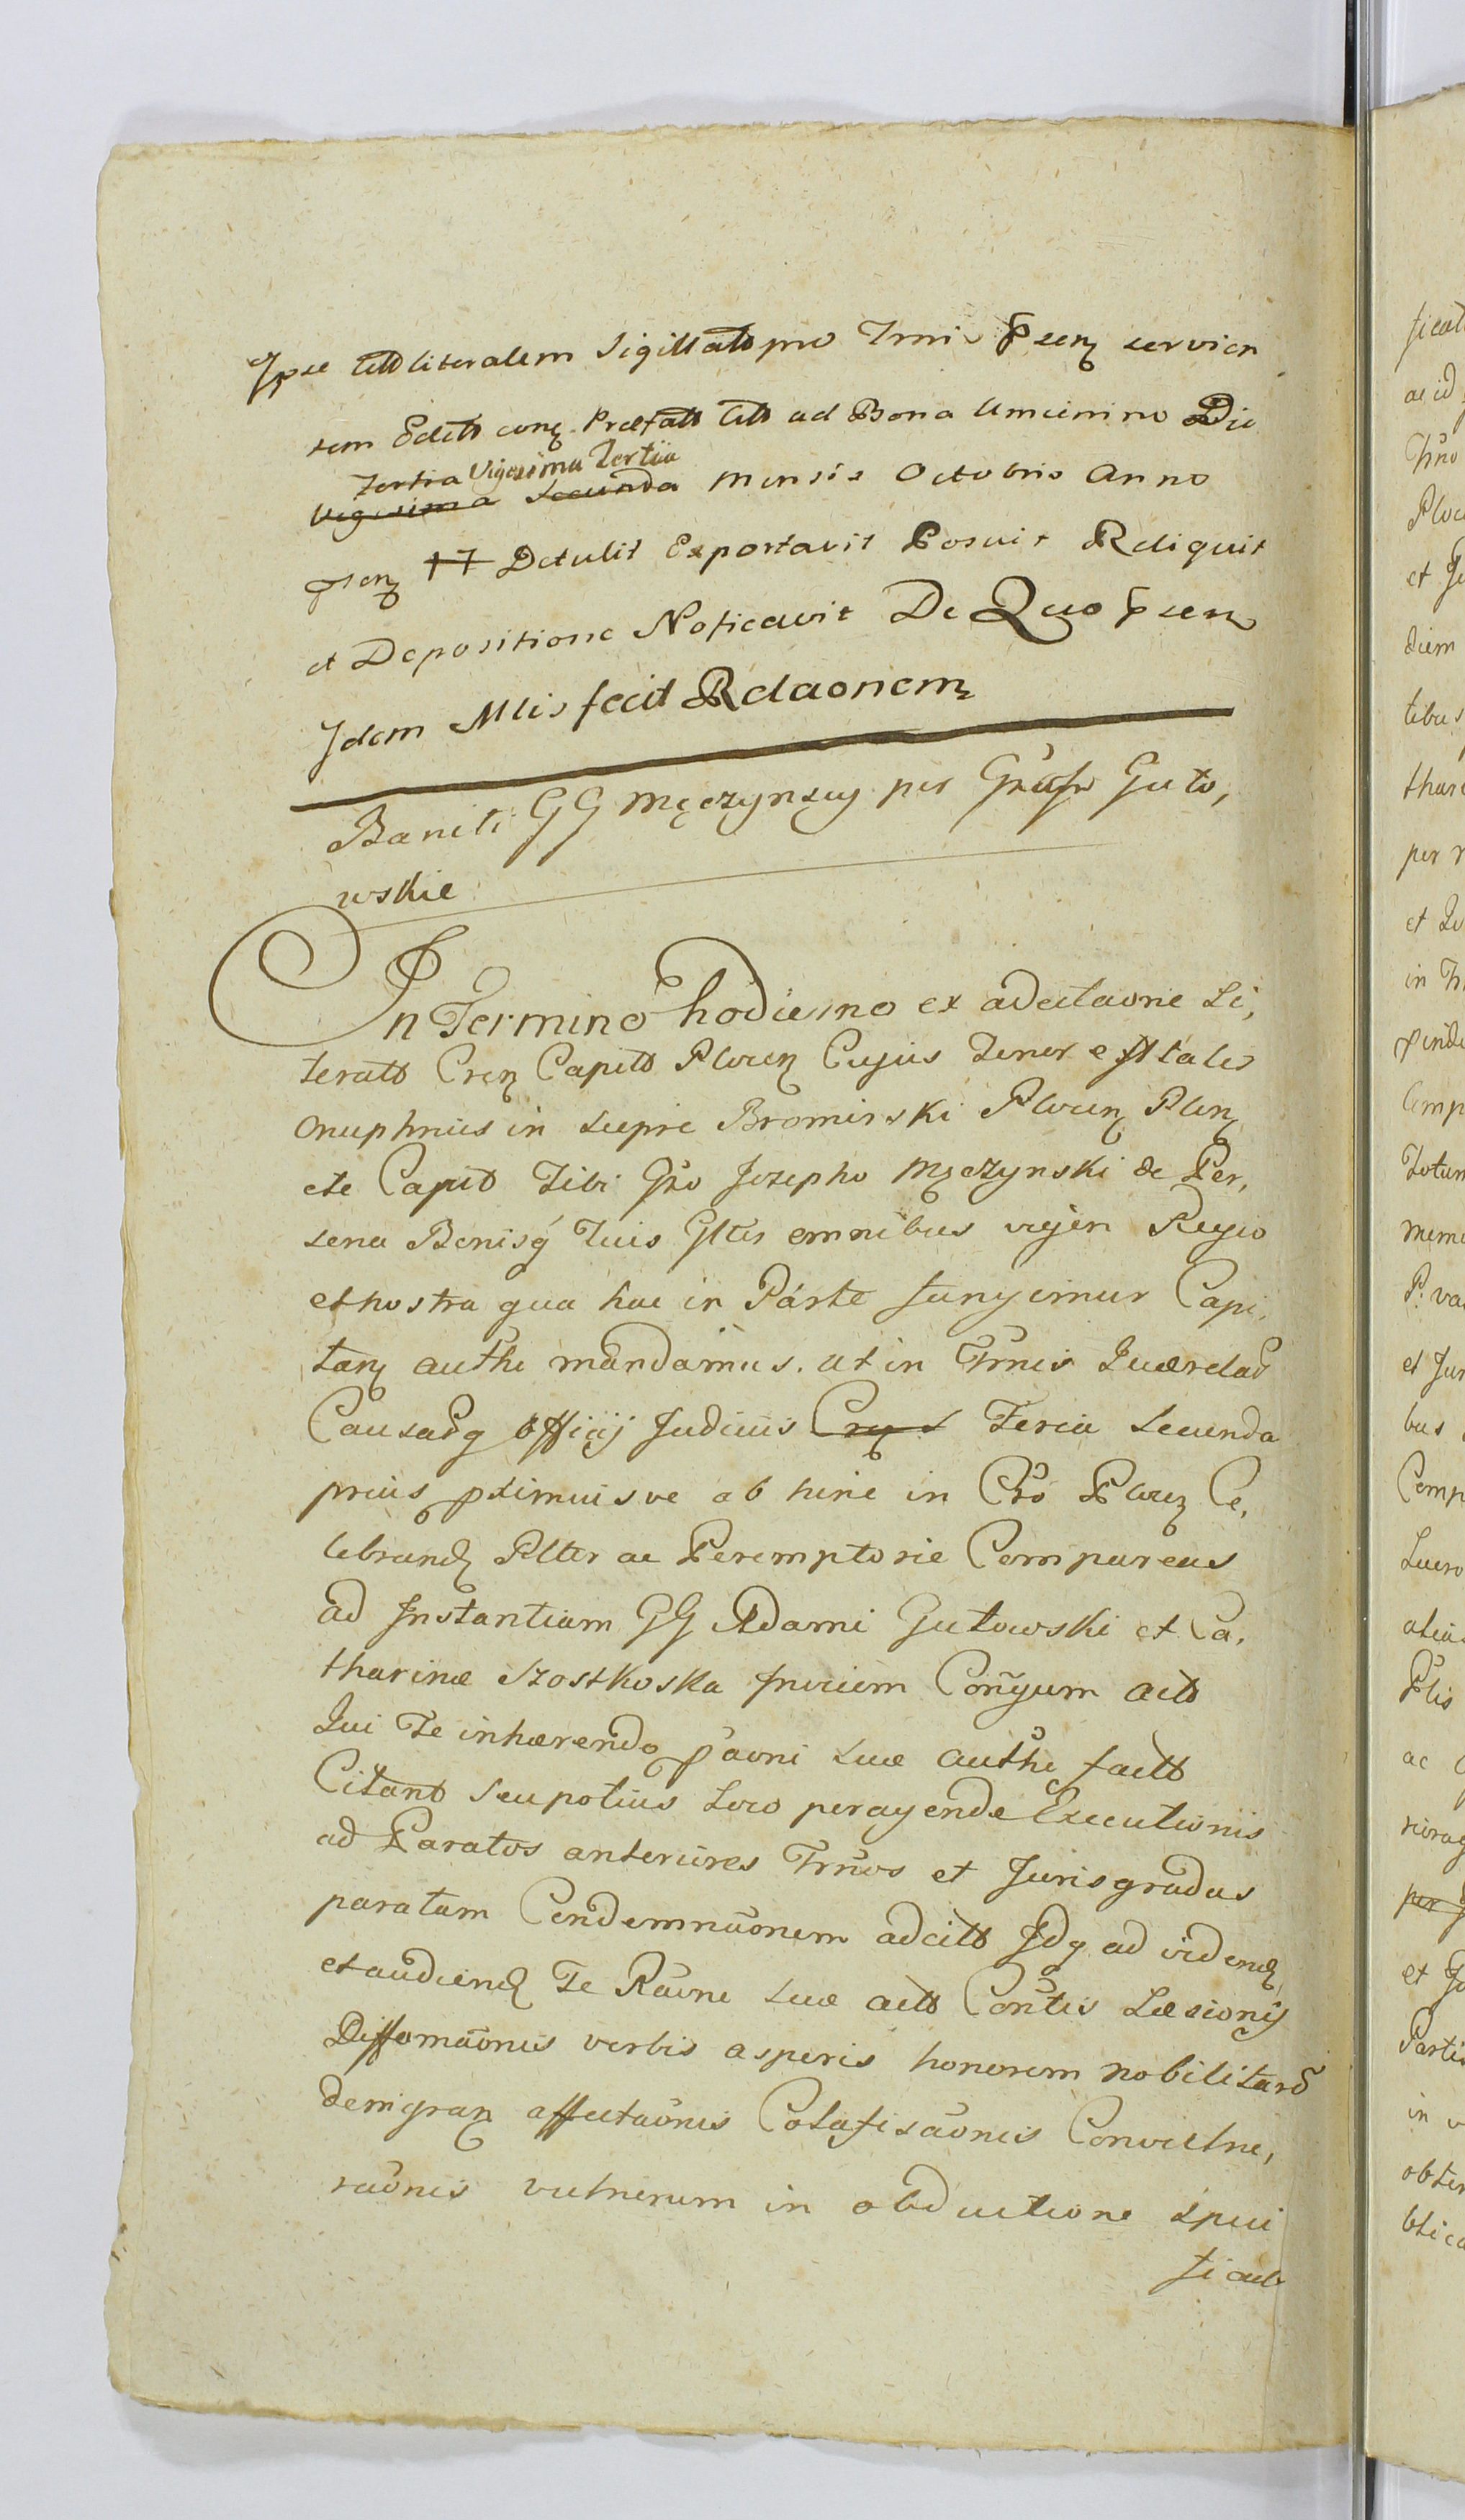 Ipse Citt literalem Sigillatt pro Trmi Psenƺ servien
tem Editt conƺ Præfatt Citt ad Bona Umienino Die
tertia Vigesima Tertia
Vigesima Secunda mensis Octobris Anno
psenƺ 17 Detulit Exportavit Posuit Reliquit
et Depositione Notificavit De Quo Psen
Idem Mlis fecit Relaonemƺ
Baniti GG Męczynscy per Gnosos Guto,
wskie
In Termino hodierno ex adcitaone Li,
teratt Crenƺ Capitt Plocenƺ Cujus Tenor est talis
Onuphrius in Siepre Bromirski Plocenƺ Plenƺ
etc Capitt Tibi Gso Josepho Męczynski de Per,
sona Bonisq Tuis Gltis omnibus vigen Regio
et nostra qua hac in Parte fungimur Capi,
tanƺ authe mandamus. ut in Trnis Querelaȓ
Causaȓq Officij Judiciis Crenƺ s Feria Secunda
prius ptimuisve ab hinc in Cro Plocenƺ Ce,
lebrandƺ Plltr ac Peremptorie Compareas
ad Instantiam GG Adami Gutowski et Ca,
tharinæ Szostkoska Invicem Conjgum actt
Qui Te inhærendo paoni suæ authe factt
Citant seu potius Loco peragendæ Executionis
ad Paratos anteriores Trnos et Jurisgradus
paratam Condemnaonem adcitt Idq ad videndƺ
et audiendƺ Te Raone suæ actt Contis Læsionis
Diffamaonis verbis asperis honorem nobilitare
denigranƺ affectaonis Colafisaonis Convulne,
raonis vulnerum in obductione speci
ficatt